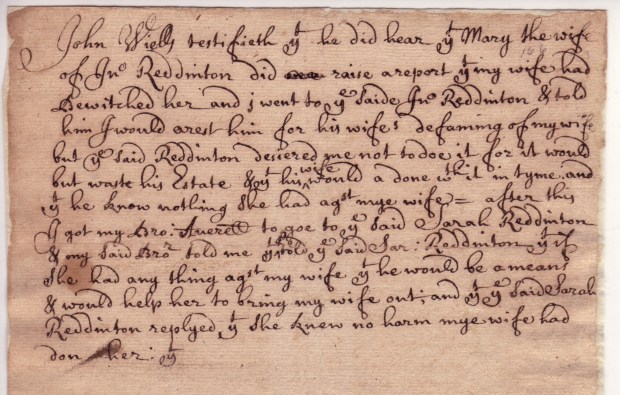 John Wiells testifieth yt he did hear yt Mary the wife
of Jno Reddinton did raise a report yt my wife had
Bewitched her and j went to ye Saide Jno Reddinton & told
him I would arest him for his wifes defaming of my wife
but ye said Reddinton desiered me not to doe it for it would
but waste his Estate & yt his wife would a done wth it in tyme and
yt he know nothing She had agst mye wife = after this
I got my Bro: Averell to goe to ye Said Sarah Reddinton
& my said Bror told me yt he told ye said Sar: Reddinton yt if
She had any thing agst my wife yt he would be a means
& would help her to bring my wife out; and yt ye Said Sarah
Reddinton replyed yt She knew no harm mye wife had
don her: yt